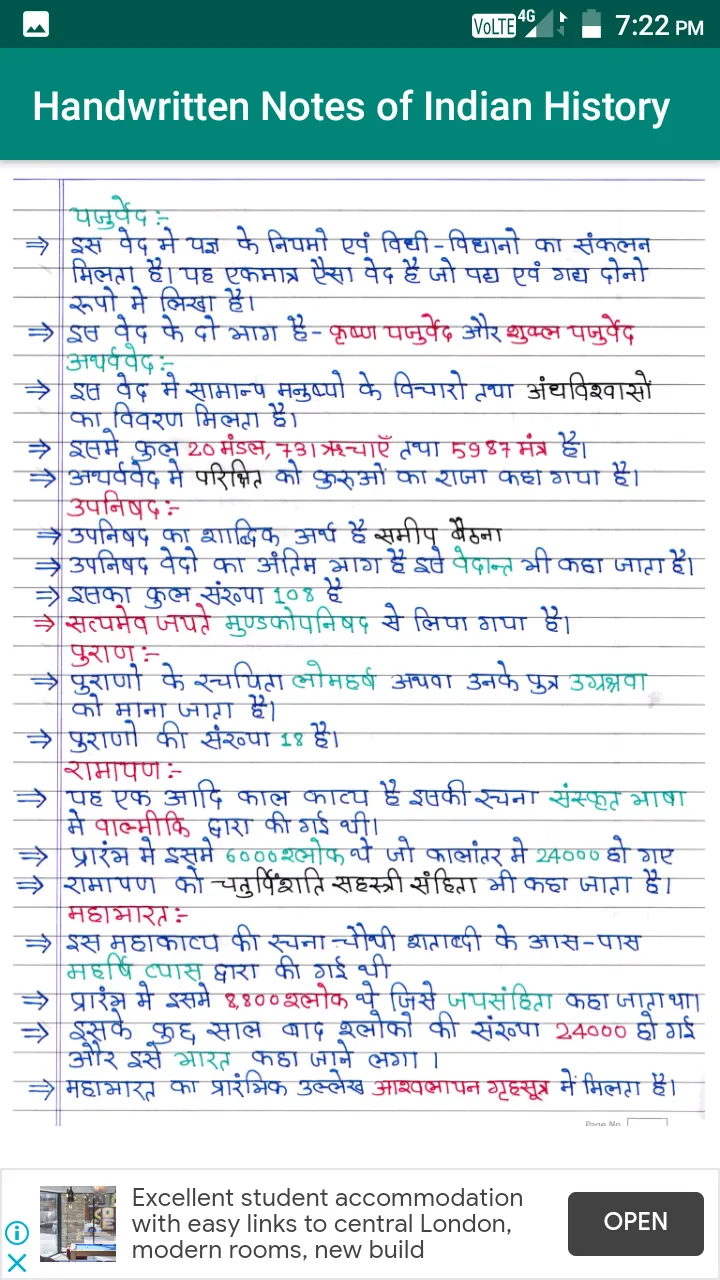 VoLTE 4G 7:22 PM
Handwritten Notes of Indian History
यजुर्वेद :-
⇒ इस वेद मे यज्ञ के नियमो एवं विधी-विधानो का संकलन
मिलता है। यह एकमात्र ऐसा वेद है जो पद्य एवं गद्य दोनो
रूपो मे लिखा है।
⇒ इस वेद के दो भाग है- कृष्ण यजुर्वेद और शुक्ल यजुर्वेद
अथर्ववेद :-
⇒ इस वेद मे सामान्य मनुष्यो के विचारो तथा अंधविश्वासों
का विवरण मिलता है।
⇒ इसमे कुल 20 मंडल, 731 ऋचाएँ तथा 5987 मंत्र है।
⇒ अथर्ववेद मे परिक्षित को कुरुओं का राजा कहा गया है।
उपनिषद :-
⇒ उपनिषद का शाब्दिक अर्थ है समीप बैठना
⇒ उपनिषद वेदो का अंतिम भाग है इसे वेदान्त भी कहा जाता है।
⇒ इसका कुल संख्या 108 है
⇒ सत्यमेव जयते मुण्डकोपनिषद से लिया गया है।
पुराण :-
⇒ पुराणो के रचयिता लोमहर्ष अथवा उनके पुत्र उग्रश्रवा
को माना जाता है।
⇒ पुराणो की संख्या 18 है।
रामायण :-
⇒ यह एक आदि काल काव्य है इसकी रचना संस्कृत भाषा
मे वाल्मीकि द्वारा की गई थी।
⇒ प्रारंभ मे इसमे 6000 श्लोक थे जो कालांतर मे 24000 हो गए
⇒ रामायण को चतुर्विंशति सहस्त्री संहिता भी कहा जाता है।
महाभारत :-
⇒ इस महाकाव्य की रचना चौथी शताब्दी के आस-पास
महर्षि व्यास द्वारा की गई थी
⇒ प्रारंभ मे इसमे 8,800 श्लोक थे जिसे जयसंहिता कहा जाता था।
⇒ इसके कुछ साल बाद श्लोको की संख्या 24000 हो गई
और इसे भारत कहा जाने लगा ।
⇒ महाभारत का प्रारंभिक उल्लेख आश्वलायन गृहसूत्र में मिलता है।
Page No.
Excellent student accommodation
with easy links to central London,
modern rooms, new build
OPEN